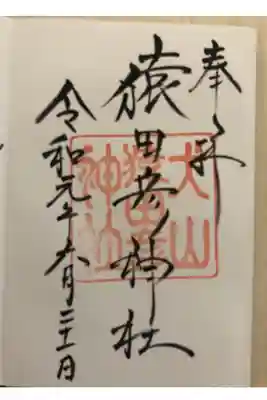 奉拝
猿田彦神社
令和元年六月二十二日
犬山
猿田彦
神社